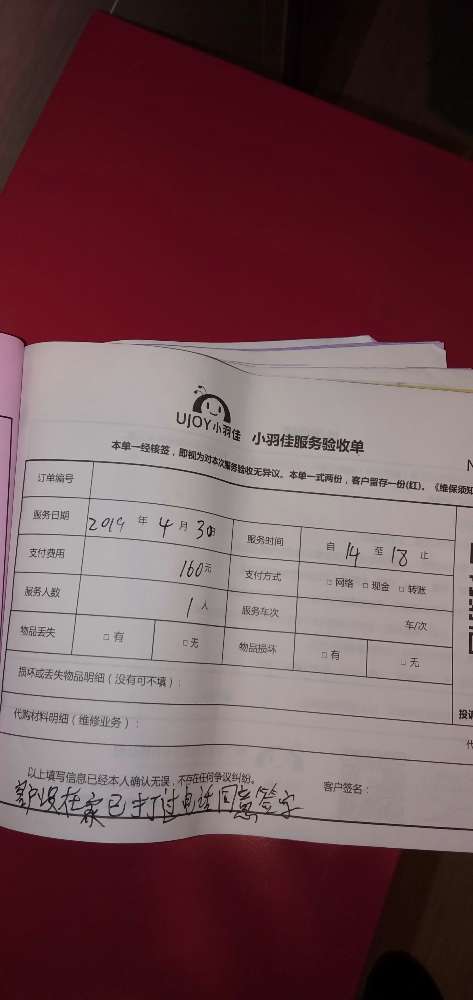 UJOY小羽佳 小羽佳服务验收单
N
本单一经核签，即视为对本次服务验收无异议。本单一式两份，客户留存一份(红)。《维保须知
订单编号
服务日期 2019 年 4 月 30日 服务时间 自 14 至 18 止
支付费用 160元 支付方式 □ 网络 □ 现金 □ 转账
服务人数 1 人 服务车次 车/次
物品丢失 □ 有 □ 无 物品损坏 □ 有 □ 无
损坏或丢失物品明细（没有可不填）：
投诉
代购材料明细（维修业务）：
以上填写信息已经本人确认无误，不存在任何争议纠纷。 客户签名：
客户没在家已打过电话同意签字